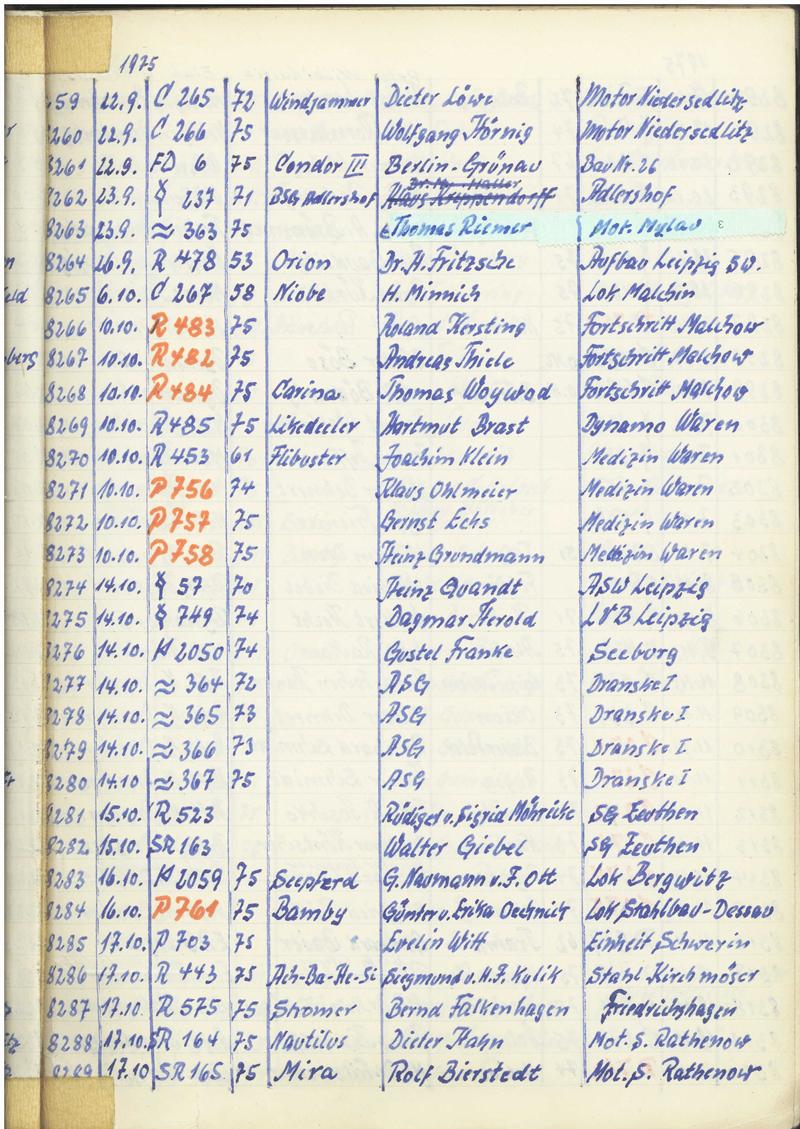 1975
459 22.9. C 265 72 Windjammer Dieter Löwe Motor Niedersedlitz
8260 22.9. C 266 75 Wolfgang Hörnig Motor Niedersedlitz
8261 22.9. FD 6 75 Condor III Berlin-Grünau Bau Nr. 26
8262 23.9. 237 71 BSG Adlershof Haller Krippendorff Adlershof
8263 23.9. ≈ 363 75 Thomas Riemer Mot. Mylau
8264 26.9. R 478 53 Orion Dr. H. Fritzsche Aufbau Leipzig SW.
8265 6.10. C 267 58 Niobe H. Minnich Lok Malchin
8266 10.10. R 483 75 Roland Kersting Fortschritt Malchow
8267 10.10. R 482 75 Andreas Thiele Fortschritt Malchow
8268 10.10. R 484 75 Carina Thomas Woywod Fortschritt Malchow
8269 10.10. R 485 75 Likedeeler Hartmut Brast Dynamo Waren
8270 10.10. R 453 61 Flibuster Joachim Klein Medizin Waren
8271 10.10. P 756 74 Klaus Ohlmeier Medizin Waren
8272 10.10. P 757 75 Gernst Echs Medizin Waren
8273 10.10. P 758 75 Heinz Grundmann Medizin Waren
8274 14.10. 57 70 Heinz Quandt ASW Leipzig
8275 14.10. 749 74 Dagmar Herold LVB Leipzig
8276 14.10. H 2050 74 Gustel Franke Seeburg
8277 14.10. ≈ 364 72 ASG Dranske I
8278 14.10. ≈ 365 73 ASG Dranske I
8279 14.10. ≈ 366 73 ASG Dranske I
8280 14.10 ≈ 367 75 ASG Dranske I
8281 15.10. R 523 Rüdiger u. Sigrid Möhricke SG Zeuthen
8282 15.10. SR 163 Walter Giebel SG Zeuthen
8283 16.10. H 2059 75 Seepferd G. Naumann u. F. Ott Lok Bergwitz
8284 16.10. P 761 75 Bamby Günter u. Erika Oechnich Lok Stahlbau-Dessau
8285 17.10. P 703 75 Evelin Witt Einheit Schwerin
8286 17.10. R 443 75 Ach-Ba-He-Si Siegmund u. H.F. Kulik Stahl Kirchmöser
8287 17.10. R 575 75 Stromer Bernd Falkenhagen Friedrichshagen
8288 17.10. SR 164 75 Nautilus Dieter Hahn Mot. S. Rathenow
8289 17.10 SR 165 75 Mira Rolf Bierstedt Mot. S. Rathenow